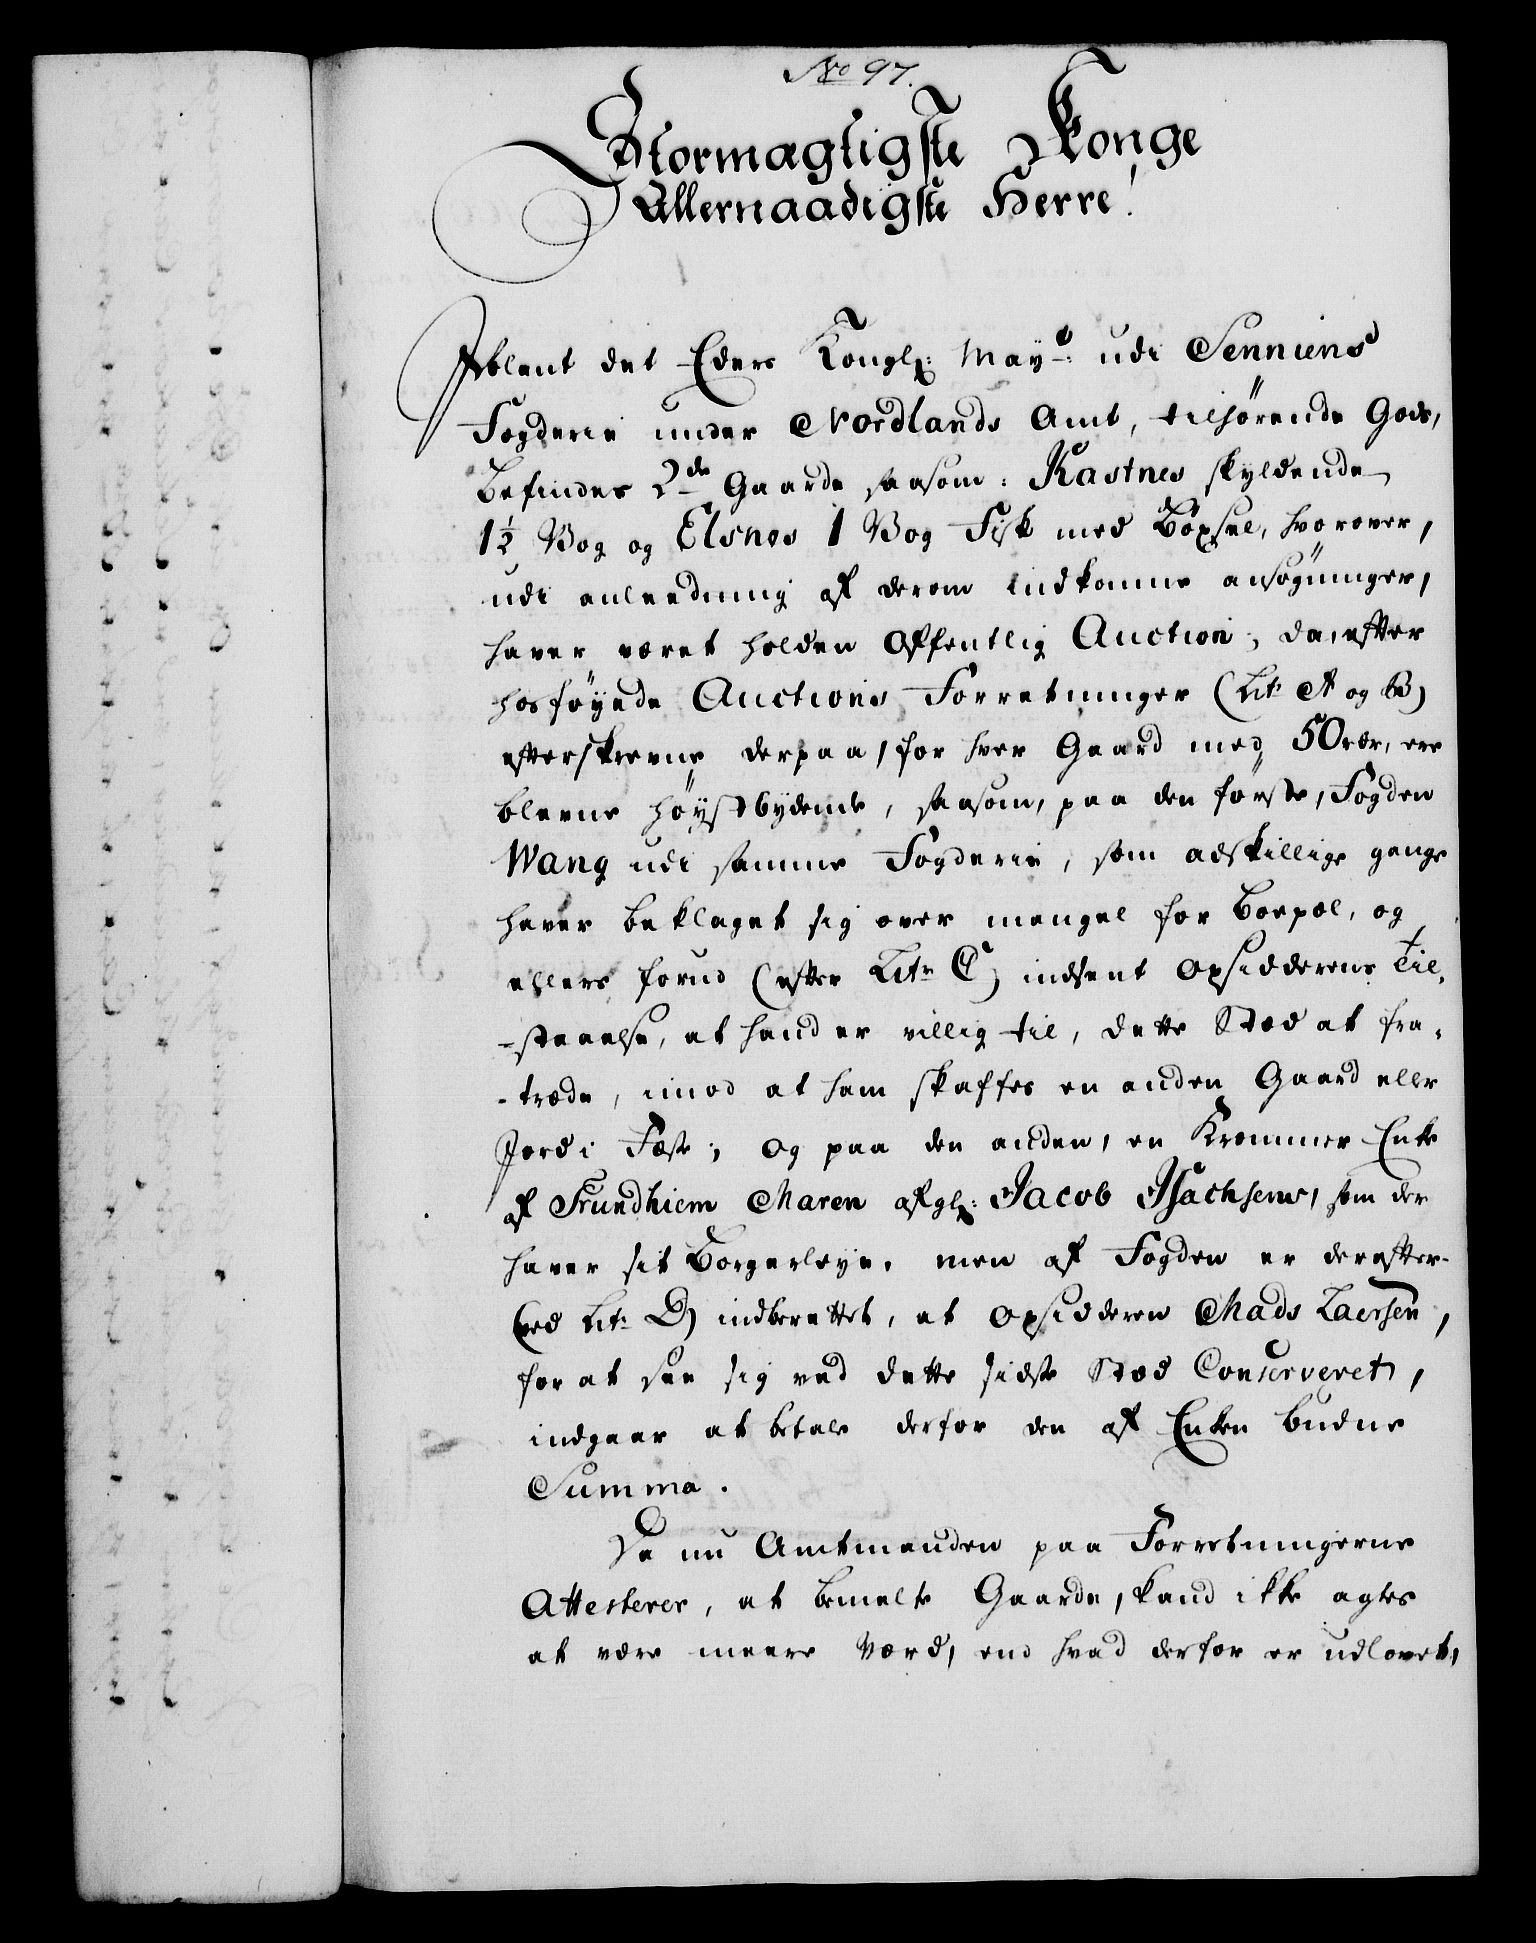 No 97.
Stormægtigste Konge
Allernaadigste Herre!
Iblant det Eders Kongl: Mayt: udi Senniens
Fogderie under Nordlands Amt, tilhørende Gods,
befindes 2de Gaarde saasom: Kastnes skyldende
1½ Vog og Elsnes 1 Vog Fisk med Bøxsel, hvorover,
udi anleedning af derom indkomne ansøgninger,
haver været holden Offentlig Auction, da, efter
hosføyede Auctions Forretninger (Lit: A og B)
efterskrevne derpaa, for hver Gaard med 50 rdr, ere
blevne høystbydende, saasom, paa den første, Fogden
Wang udi samme Fogderie, som adskillige gange
haver beklaget sig over mangel for Boepæl, og
ellers forud (efter Litr C) indsent Opsidderens Til,
-staaelse, at hand er villig til, dette Stæd at fra,
-træde, imod at ham skaffes en anden Gaard eller
Jord i Fæste; og paa den anden, en Krommer Enke
af Trundhiem Maren afgl: Jacob Isachsens, som der
haver sit Borgerleye, men af Fogden er derefter
(ved Lit: D) indberettet, at Opsidderen Mads Laersen,
for at see sig ved dette sidste Stæd Conserveret,
indgaar at betale derfor den af Enken budne
Summa.
Da nu Amtmanden paa Forretningerne
Attesterer, at bemelte Gaarde, kand ikke agtes
at være meere Værd, end hvad derfor er udlovet,